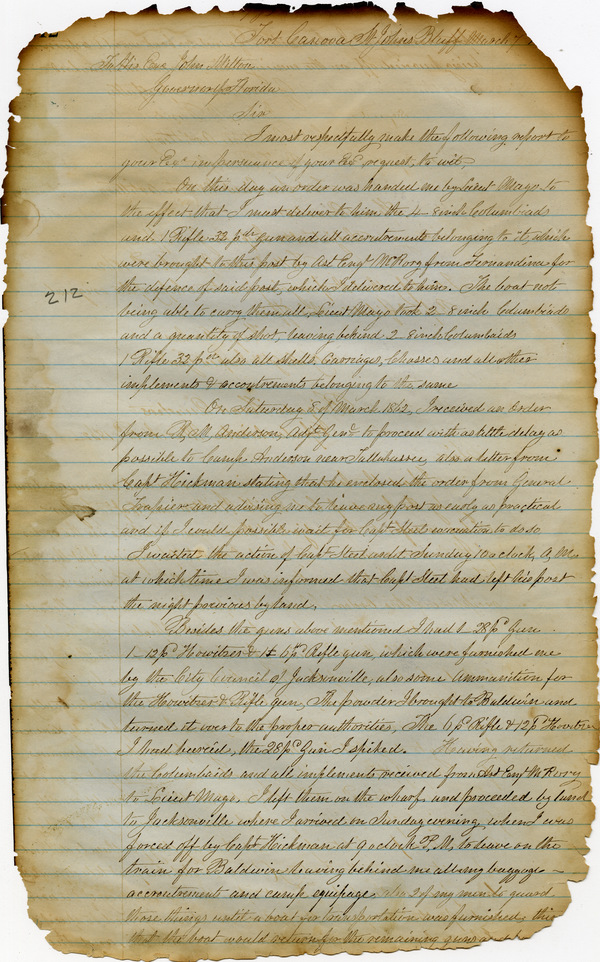 Fort Canova St Johns Bluff March 7
To His Exc John Milton
Governor of Florida
Sir
I most respectfully make the following report to
your Exc in persuance of your Exc request, to wit
On this day an order was handed me by Lieut Mayo to
the effect that I most deliver to him the 4 8 inch Columbiads
and 1 Rifle 32 pdr gun and all accoutrements belonging to it, which
were brought to this post by Ast Engr McRory from Fernandina for
the defence of said post, which I delivered to him. The boat not
being able to carry them all, Lieut Mayo took 2 8 inch Columbiads
and a quantity of shot, leaving behind 2 8 inch Columbiads
212
1 Rifle 32 pdr also all Shells, Carriages, Chasses and all other
implements & accoutrements belonging to the same
On Saturday 8 of March 1862, I received an order
from R, M, Anderson, Adjt Genl to proceed with as little delay as
possible to Camp Anderson near Tallahassee, also a letter from
Capt Hickman stating that he enclosed the order from General
Frapier and advising me to leave any post as early as practical
and if I could possible wait for Capt Steel evacuation to do so
I waited the action of Capt Steel until Sunday 10 oclock, A, M,
at which time I was informed that Capt Steel had left his post
the night previous by land,
Besides the guns above mentioned I had 1 28 pr Gun
1 12 pr Howitzer & 1 6 pr Rifle gun, which were furnished me
by the City Council of Jacksonville, also some ammunition for
the Howitzer & Rifle gun, The powder I brought to Baldwin and
turned it over to the proper authorities, The 6 pr Rifle & 12 pr Howitzer
I had buried, the 28 pr Gun I spiked. Having returned
the Columbiads and all implements received from Ast Engr McRory
to Lieut Mayo, I left them on the wharf and proceeded by land
to Jacksonville where I arrived on Sunday evening, when I was
forced off by Capt Hickman at 9 oclock P, M, to leave on the
train for Baldwin leaving behind me all my baggage
accoutrement and camp equipage, also 2 of my men to guard
those things until a boat for transportation was furnished, this
that the boat would return for the remaining guns and